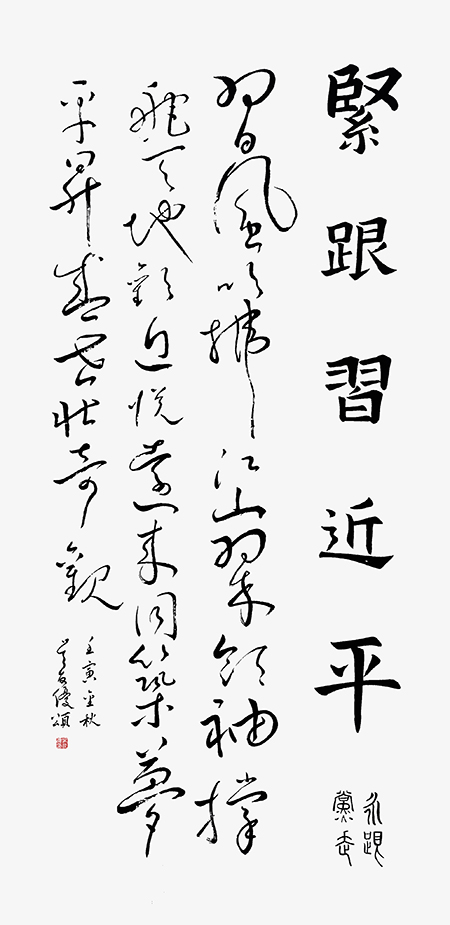 緊跟習近平
永跟
黨走
習風吹拂江山翠領袖撐
舵天地歡近悅遠來同築夢
平昇盛世壯奇觀
壬寅金秋
優頌